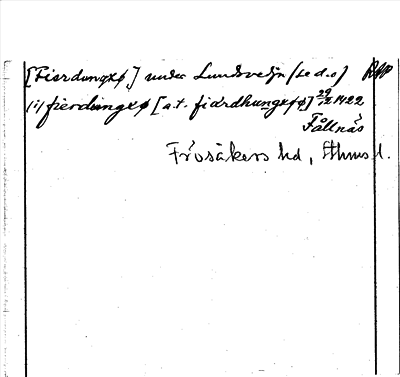 [Fierdungxø] under Lundsvedja (se d.o) RAP
(i) fierdungxø [a.t. fiardhungxøø] 29/12 1422
Fållnäs
Frösåkers hd, Sthms l.